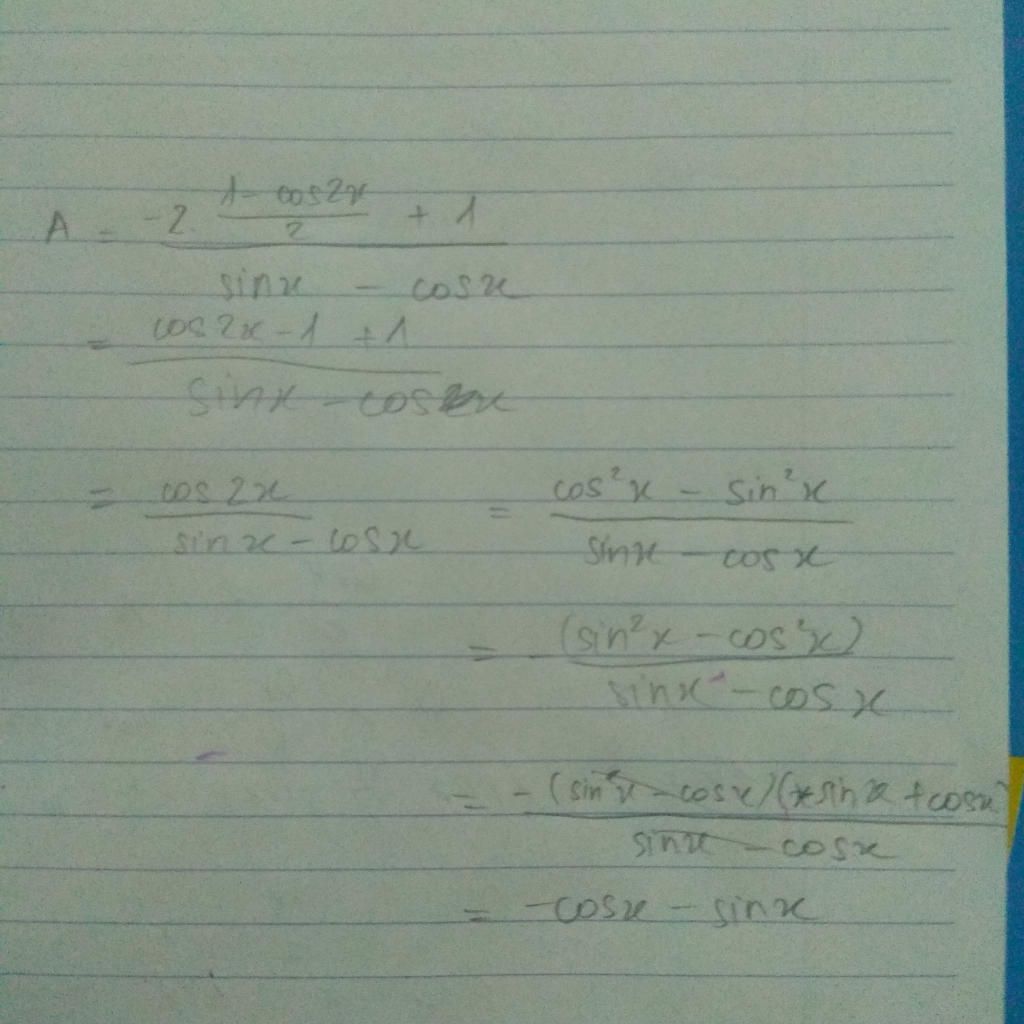 A = (-2 · (1 - cos2x)/2 + 1)/(sinx - cosx)
= (cos2x - 1 + 1)/(sinx - cosx)
= (cos2x)/(sinx - cosx) = (cos²x - sin²x)/(sinx - cosx)
= -(sin²x - cos²x)/(sinx - cosx)
= -(sinx - cosx)(sinx + cosx)/(sinx - cosx)
= -cosx - sinx